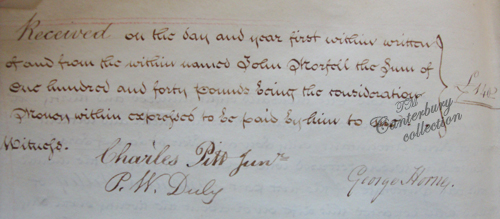 Received on the day and year first within written
of and from the within named John Morfell the Sum of
One hundred and forty pounds being the consideration
Money within expressed to be paid by him to me.
£140
Witness.
Charles Pitt Junr
P. W. Duly
George Horny.
The Canterbury
collection